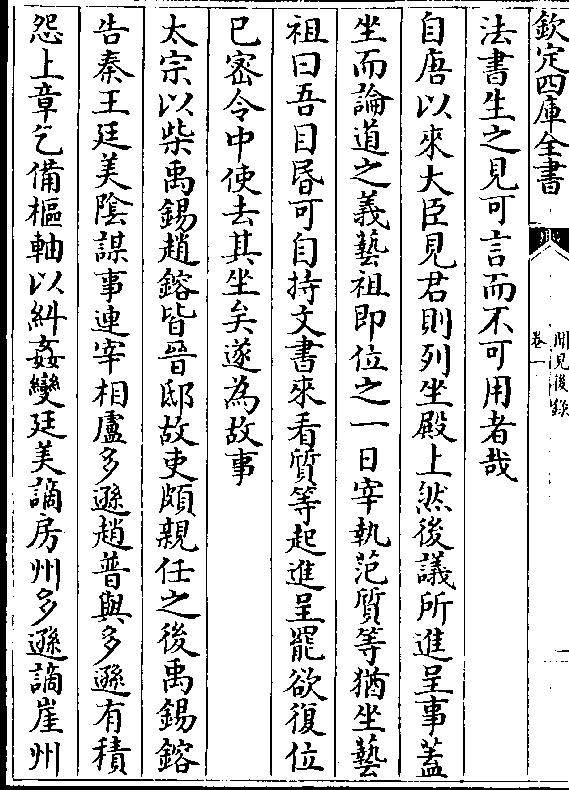 欽定四庫全書
聞見後錄
卷一
法書生之見可言而不可用者哉
自唐以來大臣見君則列坐殿上然後議所進呈事蓋
坐而論道之義藝祖即位之一日宰執范質等猶坐藝
祖曰吾目昬可自持文書來看質等起進呈罷欲復位
已密令中使去其坐矣遂為故事
太宗以柴禹錫趙鎔皆晉邸故吏頗親任之後禹錫鎔
告秦王廷美隂謀事連宰相盧多遜趙普與多遜有積
怨上章乞備樞軸以糾姦變廷美謫房州多遜謫崖州